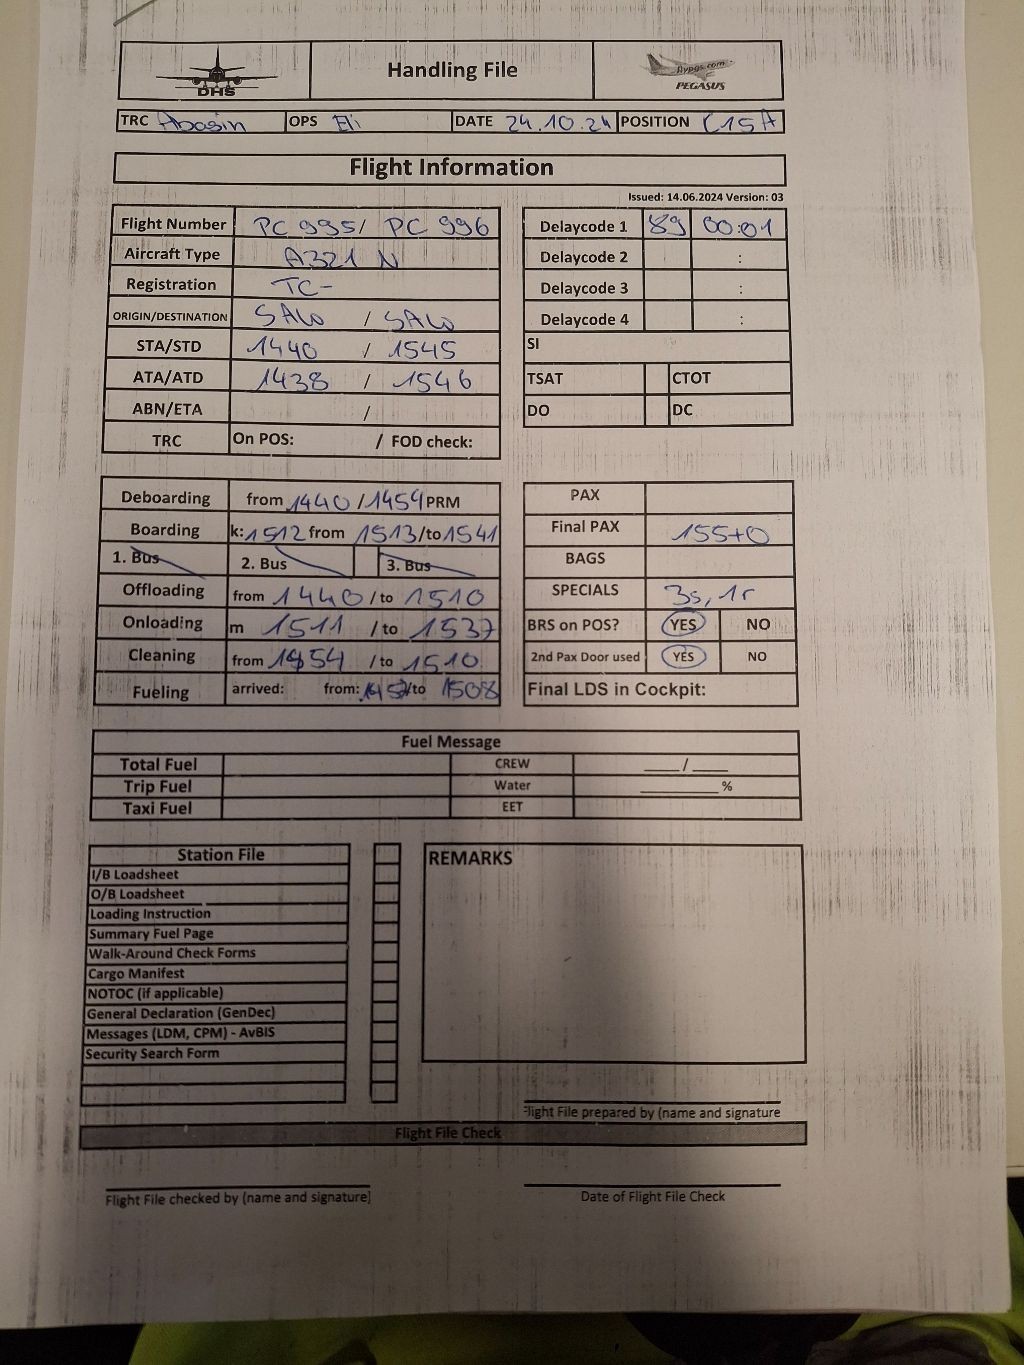 DHS
Handling File
flypgs.com
PEGASUS
TRC Abasin OPS Eli DATE 24.10.24 POSITION C15A
Flight Information
Issued: 14.06.2024 Version: 03
Flight Number PC 995/ PC 996
Aircraft Type A321 N
Registration TC-
ORIGIN/DESTINATION SAW / SAW
STA/STD 1440 / 1545
ATA/ATD 1438 / 1546
ABN/ETA /
TRC On POS: / FOD check:
Delaycode 1 89 00:01
Delaycode 2 :
Delaycode 3 :
Delaycode 4 :
SI
TSAT CTOT
DO DC
Deboarding from 1440 / 1454 PRM
Boarding k: 1512 from 1513 /to 1541
1. Bus 2. Bus 3. Bus
Offloading from 1440 /to 1510
Onloading m 1511 /to 1537
Cleaning from 1454 /to 1510
Fueling arrived: from: 1457 /to 1508
PAX
Final PAX 155+0
BAGS
SPECIALS 3s, 1r
BRS on POS? YES NO
2nd Pax Door used YES NO
Final LDS in Cockpit:
Fuel Message
Total Fuel CREW ____/____
Trip Fuel Water ________%
Taxi Fuel EET
Station File
I/B Loadsheet
O/B Loadsheet
Loading Instruction
Summary Fuel Page
Walk-Around Check Forms
Cargo Manifest
NOTOC (if applicable)
General Declaration (GenDec)
Messages (LDM, CPM) - AvBIS
Security Search Form
REMARKS
Flight File prepared by (name and signature
Flight File Check
Flight File checked by (name and signature)
Date of Flight File Check